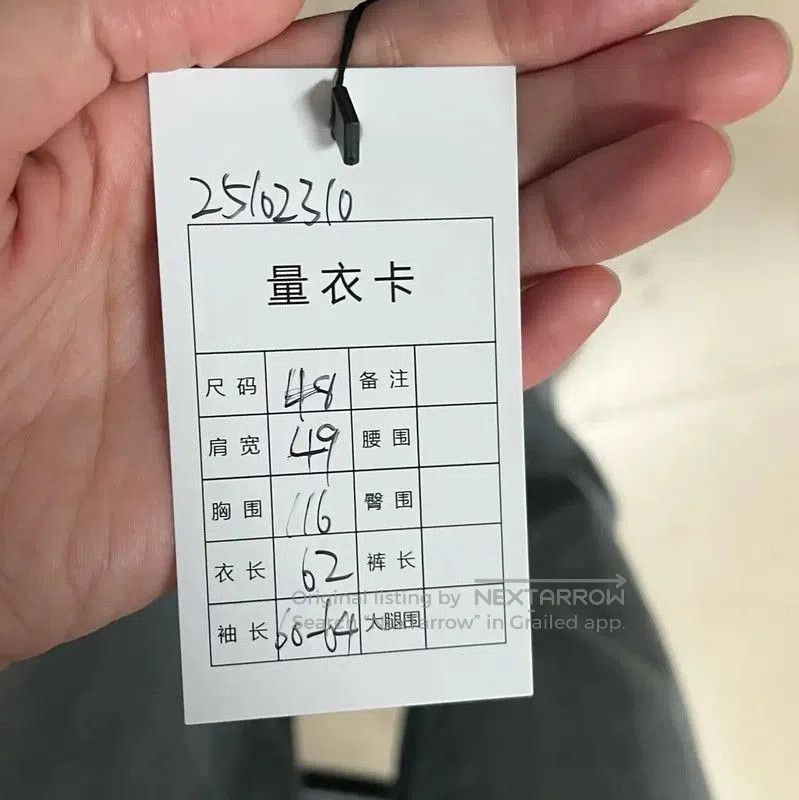 25102310
量衣卡
尺码 48 备注
肩宽 49 腰围
胸围 116 臀围
衣长 62 裤长
袖长 60-64 大腿围
Original listing by NEXTARROW
Search "nextarrow" in Grailed app.